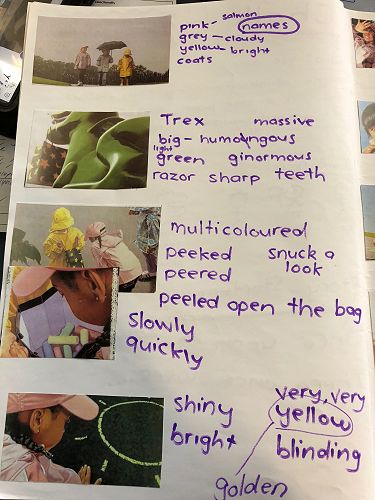 salmon
pink- names
grey - cloudy
yellow - bright
coats
Trex massive
big - humoungous
light
green ginormous
razor sharp teeth
multicoloured
peeked snuck a
peered look
peeled open the bag
slowly
quickly
very, very
shiny yellow
bright blinding
golden